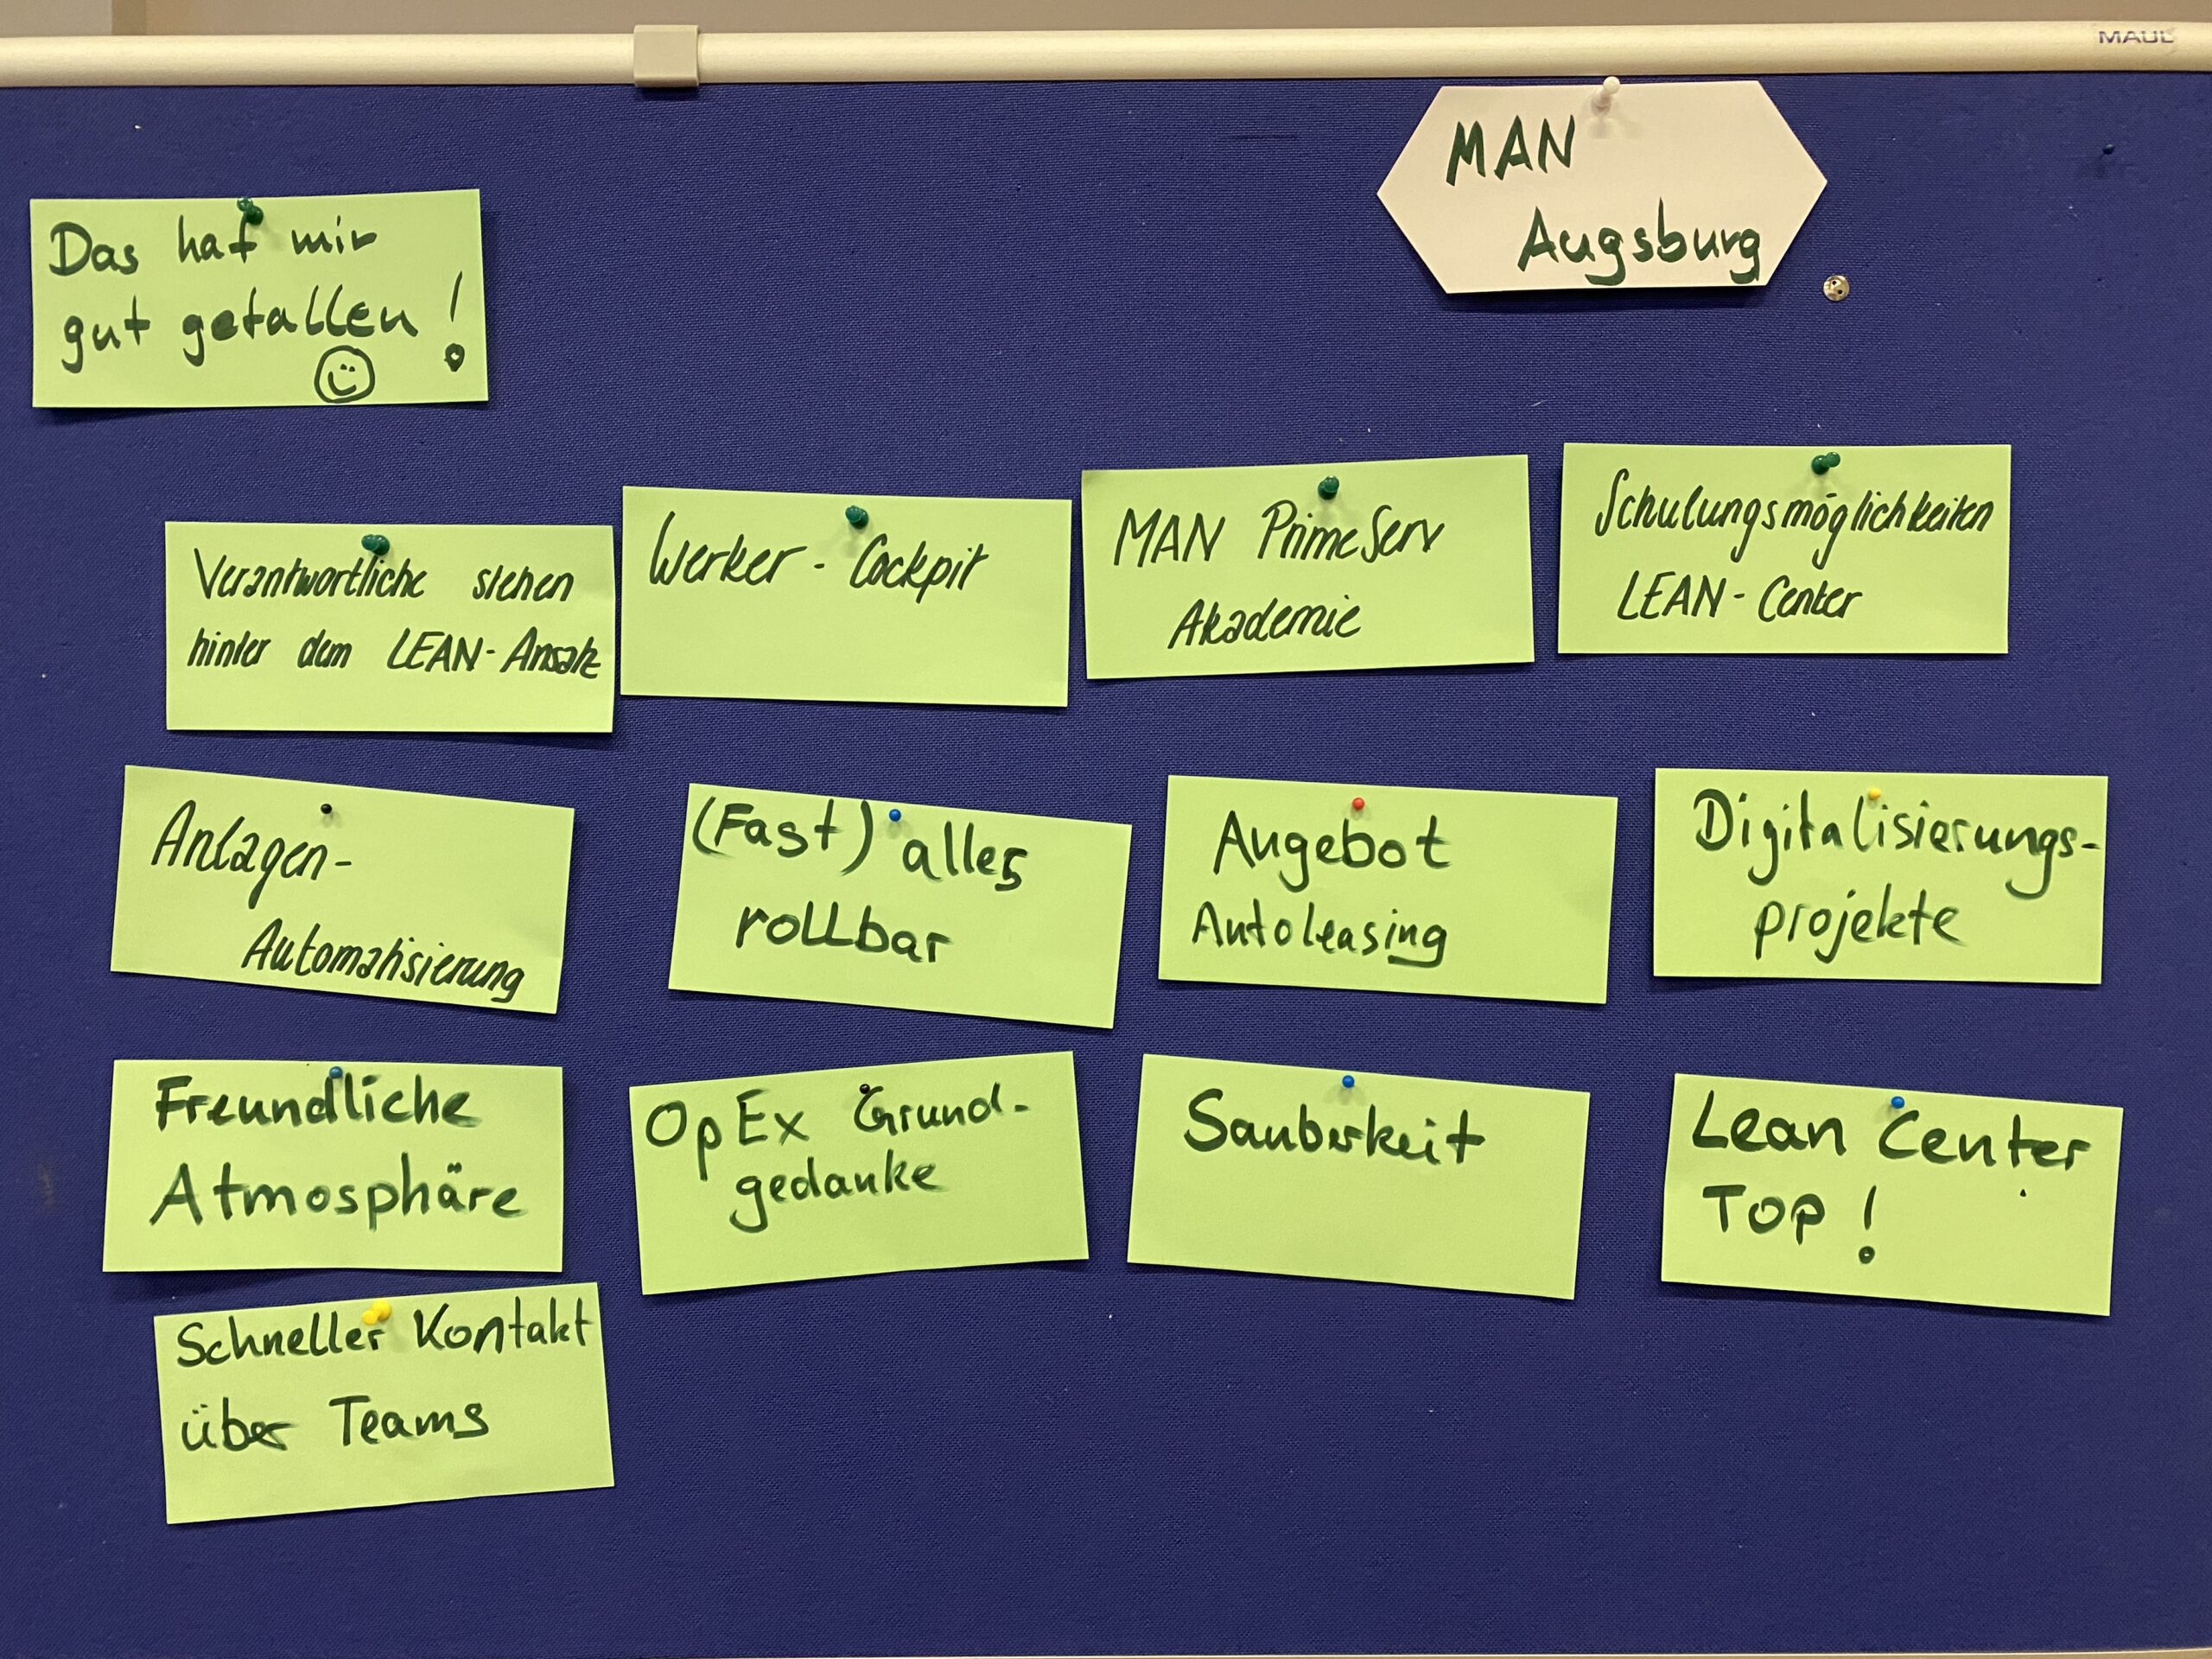 MAUL
MAN
Augsburg
Das hat mir
gut gefallen!
Verantwortliche stehen
hinter dem LEAN-Ansatz
Werker-Cockpit
MAN PrimeServ
Akademie
Schulungsmöglichkeiten
LEAN-Center
Anlagen-
Automatisierung
(Fast) alles
rollbar
Angebot
Autoleasing
Digitalisierungs-
projekte
Freundliche
Atmosphäre
OpEx Grund-
gedanke
Sauberkeit
Lean Center
TOP!
Schneller Kontakt
über Teams